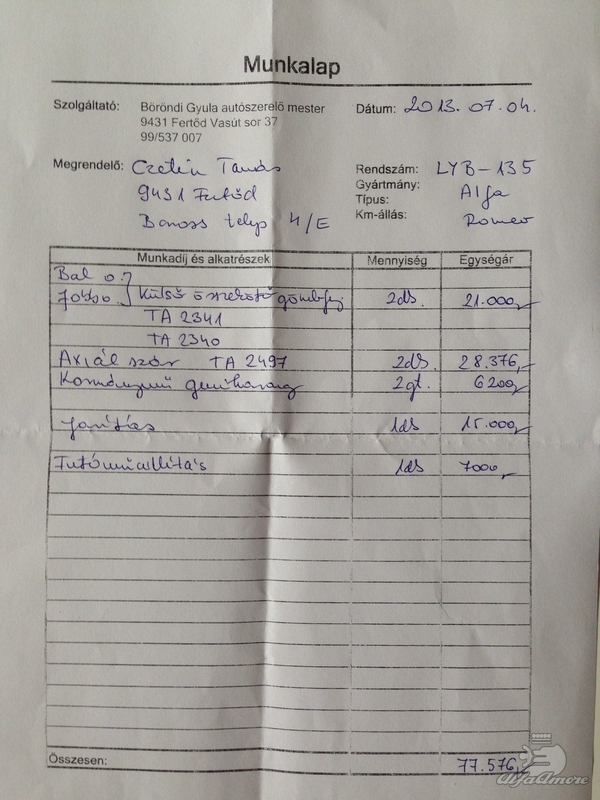 Munkalap
Szolgáltató: Böröndi Gyula autószerelő mester
9431 Fertőd Vasút sor 37
99/537 007
Dátum: 2013.07.04.
Megrendelő: Tamás
9431 Fertőd
4/E
Rendszám: LYB-135
Gyártmány: Alfa
Típus:
Km-állás: Romeo
Munkadíj és alkatrészek Mennyiség Egységár
Bal o.
Jobb o. Külső összekötő gömbfej 2db. 21.000,-
TA 2341
TA 2340
Axiál szár TA 2497 2db. 28.376,-
Kormánymű gumiharang 2gt. 6200,-
Javítás 1db 15.000,-
Futómű állítás 1db 7000,-
Összesen: 77.576,-
AlfaAmore